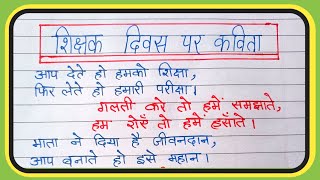 शिक्षक दिवस पर कविता
आप देते हो हमको शिक्षा,
फिर लेते हो हमारी परीक्षा।
गलती करे तो हमें समझाते,
हम रोएँ तो हमें हँसाते।
माता ने दिया है जीवनदान,
आप बनाते हो इसे महान।